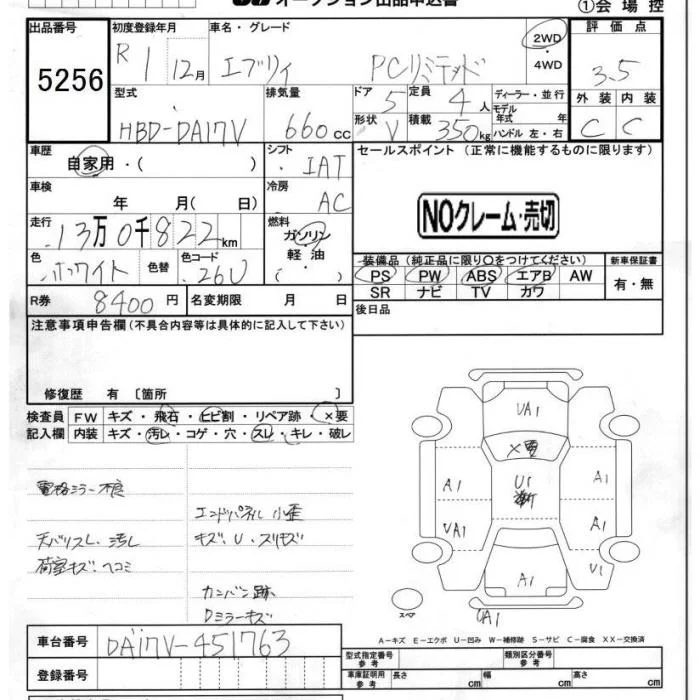 オークション出品申込書
①会場控
出品番号 初度登録年月 車名・グレード 2WD 評価点
5256 R 1 12月 エブリィ PCリミテッド ・ 4WD 3.5
型式 排気量 ドア 5 定員 4人 ディーラー・並行 外装 内装
HBD-DA17V 660cc 形状 V 積載 350kg モデル年式 年 ハンドル 左・右 C C
車歴 自家用・( ) シフト IAT セールスポイント (正常に機能するものに限ります)
車検 年 月( 日) 冷房 AC
NOクレーム・売切
走行 13万0千822km 燃料 ガソリン・軽油・( )
色 ホワイト 色替 色コード 26U
装備品(純正品に限り○をつけてください) 新車保証書
PS PW ABS エアB AW 有・無
SR ナビ TV カワ
R券 8400円 名変期限 月 日 後日品
注意事項申告欄(不具合内容等は具体的に記入して下さい)
修復歴 有 〔箇所 〕
検査員 FW キズ・飛石・ヒビ割・リペア跡・×要
記入欄 内装 キズ・汚レ・コゲ・穴・スレ・キレ・破レ
UA1
×要
A1 U1 A1
UA1 A1
A1 U1
UA1
電格ミラー不良
エンドパネル小歪
天バリスレ、汚レ キズ、U、スリキズ
荷室キズ、ヘコミ
カンバン跡
Dミラーキズ
スペア
A-キズ E-エクボ U-凹み W-補修跡 S-サビ C-腐食 XX-交換済
車台番号 DA17V-451763
登録番号
型式指定番号 参考 類別区分番号 参考
車庫証明用 参考 長さ cm 幅 cm 高さ cm